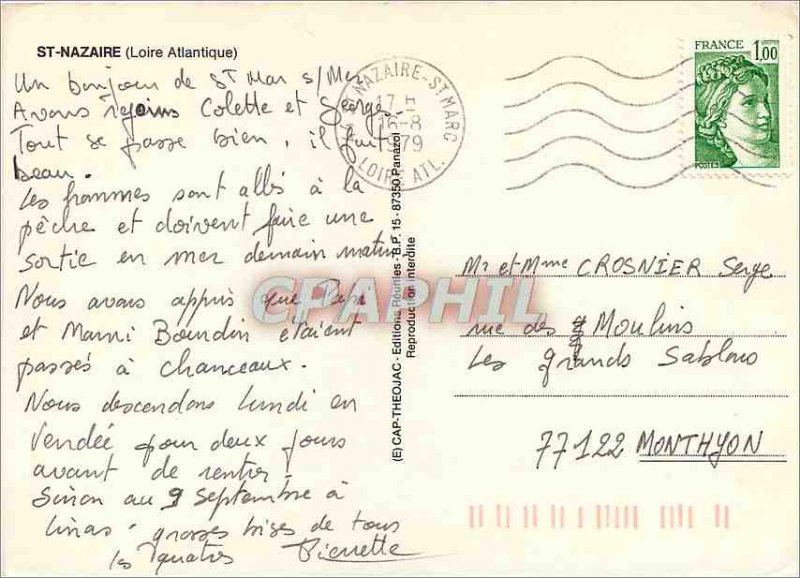 ST-NAZAIRE (Loire Atlantique)
Un bonjour de St Mar s/Mer
Avons rejoins Colette et George
Tout se passe bien, il fait
beau.
Les hommes sont allés à la
pêche et doivent faire une
sortie en mer demain matin
Nous avons appris que Papi
et Mami Bourdin étaient
passés à Chanceaux.
Nous descendons lundi en
Vendée pour deux jours
avant de rentrer!
Sinon au 9 Septembre à
Linas - grosses bises de tous
les quatres Pierrette
(E) CAP-THEOJAC - Editions Réunies - B.P. 15 - 87350 Panazol
Reproduction interdite
NAZAIRE-ST MARC
17 H
16-8
1979
LOIRE ATL.
FRANCE 1,00
POSTES
Mr et Mme CROSNIER Serge
rue des Moulins
Les grands Sablons
77122 MONTHYON
CPAPHIL